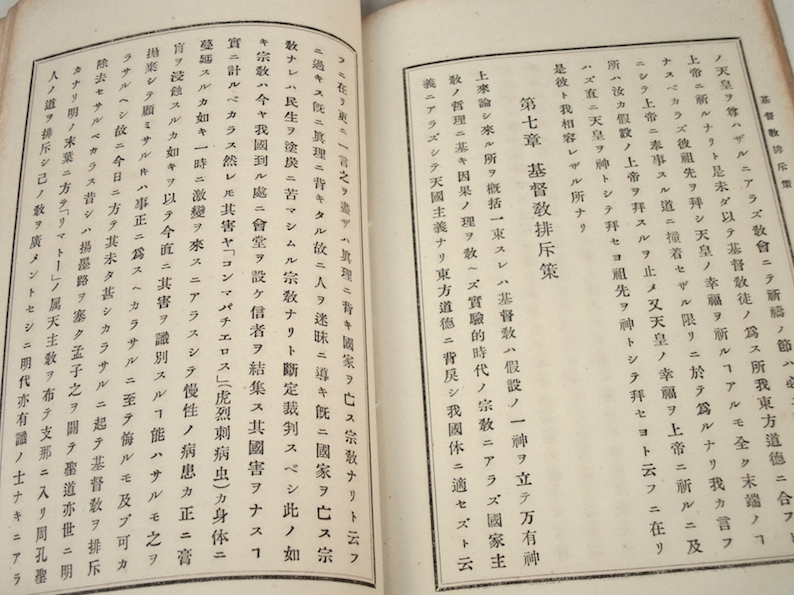 基督教排斥策
ノ天皇ヲ尊ハザルニアラズ教會ニテ祈禱ノ節ハ必
上帝ニ祈ルナリト是未ダ以テ基督教徒ノ爲ス所我東方道德ニ合フト
ナスベカラズ彼祖先ヲ拜シ天皇ノ幸福ヲ祈ルヿアルモ全ク末端ノヿ
ニシテ上帝ニ奉事スル道ニ撞着セザル限リニ於テ爲ルナリ我カ言フ
所ハ汝カ假設ノ上帝ヲ拜スルヲ止メ又天皇ノ幸福ヲ上帝ニ祈ルニ及
ハズ直ニ天皇ヲ神トシテ拜セヨ祖先ヲ神トシテ拜セヨト云フニ在リ
是彼ト我相容レザル所ナリ
第七章 基督教排斥策
上來論シ來ル所ヲ概括一束スレハ基督教ハ假設ノ一神ヲ立テ万有神
教ノ哲理ニ基キ因果ノ理ヲ教ヘズ實驗的時代ノ宗教ニアラズ國家主
義ニアラズシテ天國主義ナリ東方道德ニ背戾シ我國体ニ適セズト云
フニ在リ東ニ一言之ヲ盡せハ眞理ニ背キ國家ヲ亡ス宗教ナリト云フ
ニ過キス旣ニ眞理ニ背キタル故ニ人ヲ迷昧ニ導キ旣ニ國家ヲ亡ス宗
教ナレハ民生ヲ塗炭ニ苦マシムル宗教ナリト斷定裁判スベシ此ノ如
キ宗教ハ今ヤ我國到ル處ニ會堂ヲ設ケ信者ヲ結集ス其國害ヲナスヿ
實ニ計ルベカラス然レモ其害ヤ「コンマパチエロス」(虎烈刺病虫)カ身体ニ
蔓延スルカ如キ一時ニ激變ヲ來スニアラスシテ慢性ノ病患カ正ニ膏
肓ヲ浸蝕スルカ如キヲ以テ今直ニ其害ヲ識別スルヿ能ハサルモ之ヲ
拋棄シテ顧ミサル片ハ事正ニ爲スヘカラサルニ至テ悔ルモ及ブ可カ
ラサルヘシ故ニ今日ニ方テ其未タ甚シカラサルニ起テ基督教ヲ排斥
除去セサルベカラス昔シハ揚墨路ヲ塞ク孟子之ヲ闢テ聖道亦世ニ明
カナリ明ノ末葉ニ方テ「リマトー」ノ属天主教ヲ布テ支那ニ入リ周孔聖
人ノ道ヲ排斥シ己ノ教ヲ廣メントセシニ明代亦有識ノ士ナキニアラ